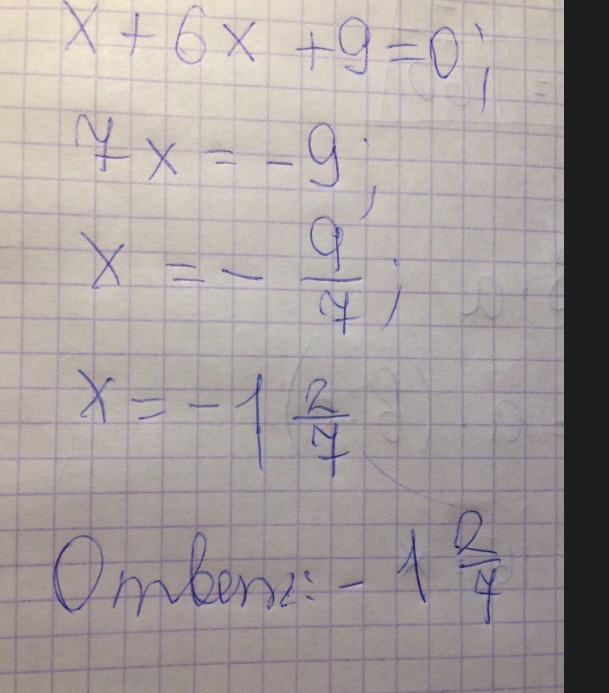 x + 6x + 9 = 0;
7x = -9;
x = - 9/7;
x = -1 2/7
Ответ: - 1 2/7